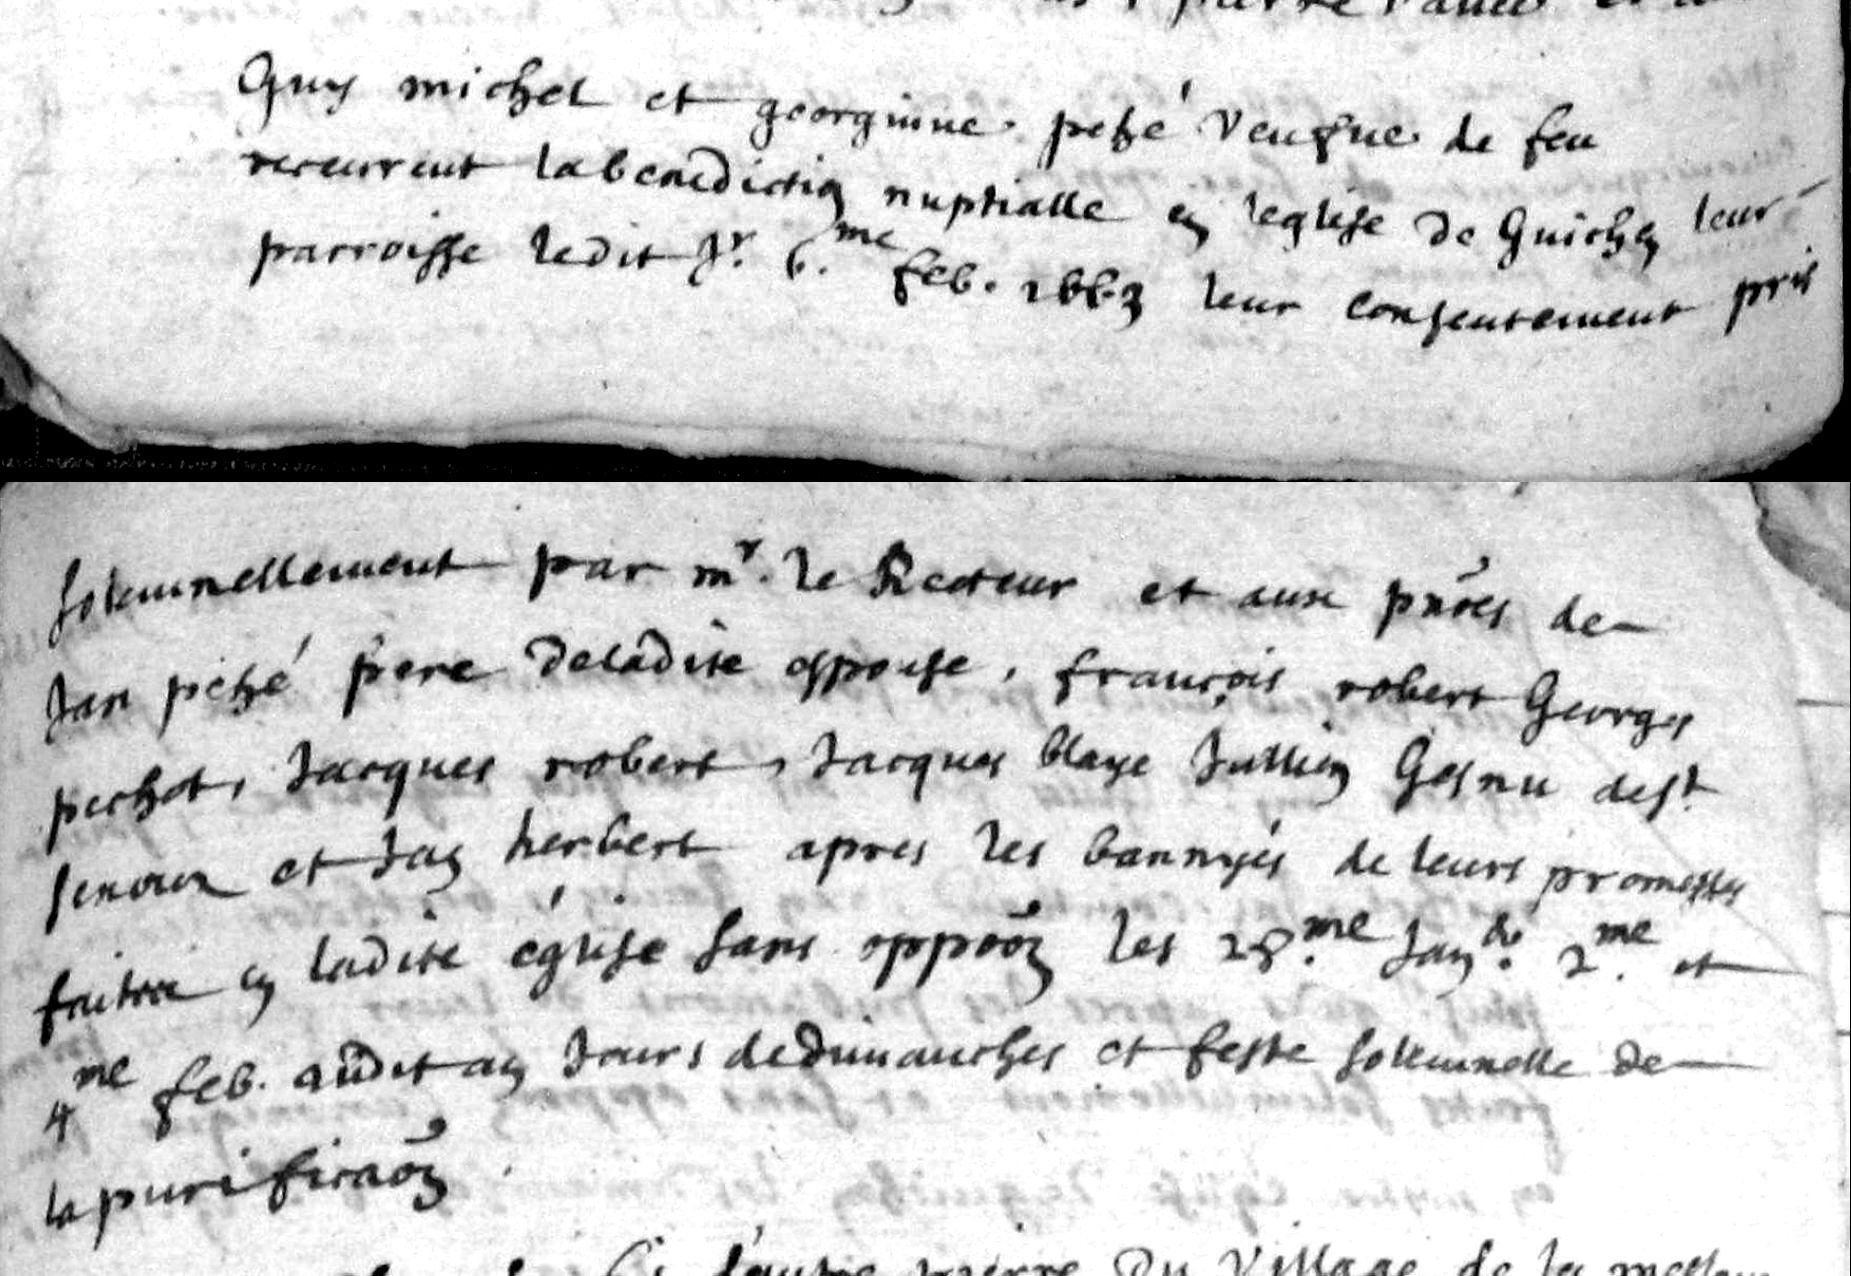 pierre
Guy michel et georginne pehé veufue de feu
receurent la benedictiõ nuptialle eñ leglise de Guicheñ leur
parroisse ledit Jr. 6.me feb. 1663 leur consentement pris
solemnellement par mr. le Recteur et aux pñces de
Jan pehé frere de ladite espouse, françois robert Georges
pechot, Jacques robert, Jacques blaye Jullieñ Gesnu dest
senoux et Jañ herbert apres les bannyés de leurs promesses
faittes eñ ladite église sans oppoõñ les 28.me Jañ. 2.me et
4me feb. audit añ Jours de dimanches et feste solemnelle de
la purificaõñ
pierre Du Village de la